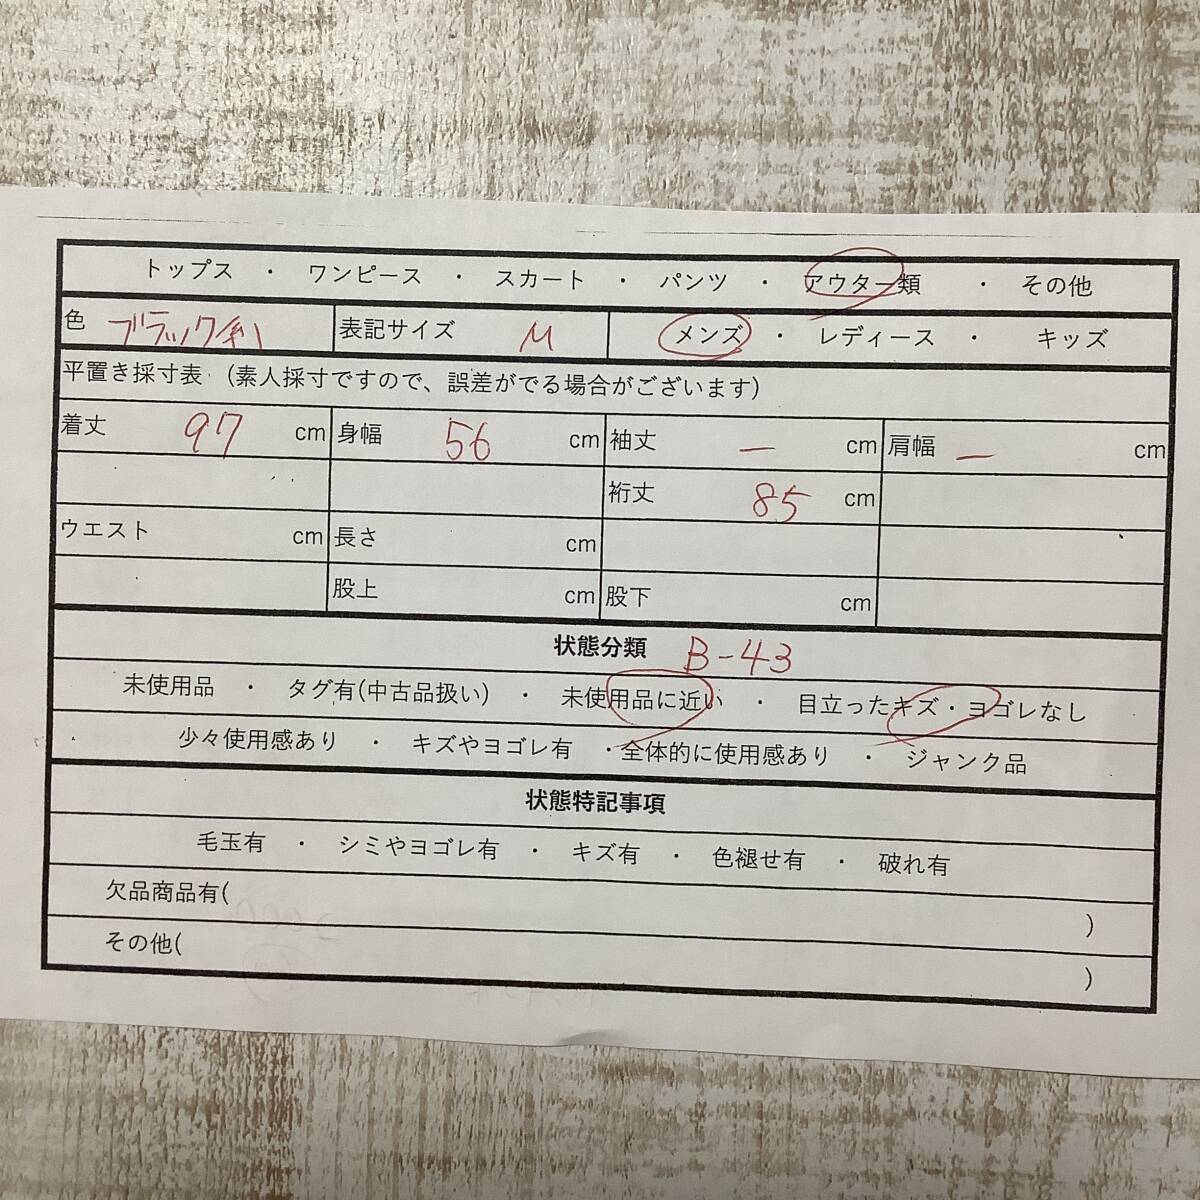 トップス ・ ワンピース ・ スカート ・ パンツ ・ アウター類 ・ その他
色 ブラック系 表記サイズ M メンズ ・ レディース ・ キッズ
平置き採寸表 (素人採寸ですので、誤差がでる場合がございます)
着丈 97 cm 身幅 56 cm 袖丈 ー cm 肩幅 ー cm
裄丈 85 cm
ウエスト cm 長さ cm
股上 cm 股下 cm
状態分類 B-43
未使用品 ・ タグ有(中古品扱い) ・ 未使用品に近い ・ 目立ったキズ・ヨゴレなし
少々使用感あり ・ キズやヨゴレ有 ・全体的に使用感あり ・ ジャンク品
状態特記事項
毛玉有 ・ シミやヨゴレ有 ・ キズ有 ・ 色褪せ有 ・ 破れ有
欠品商品有( )
その他( )